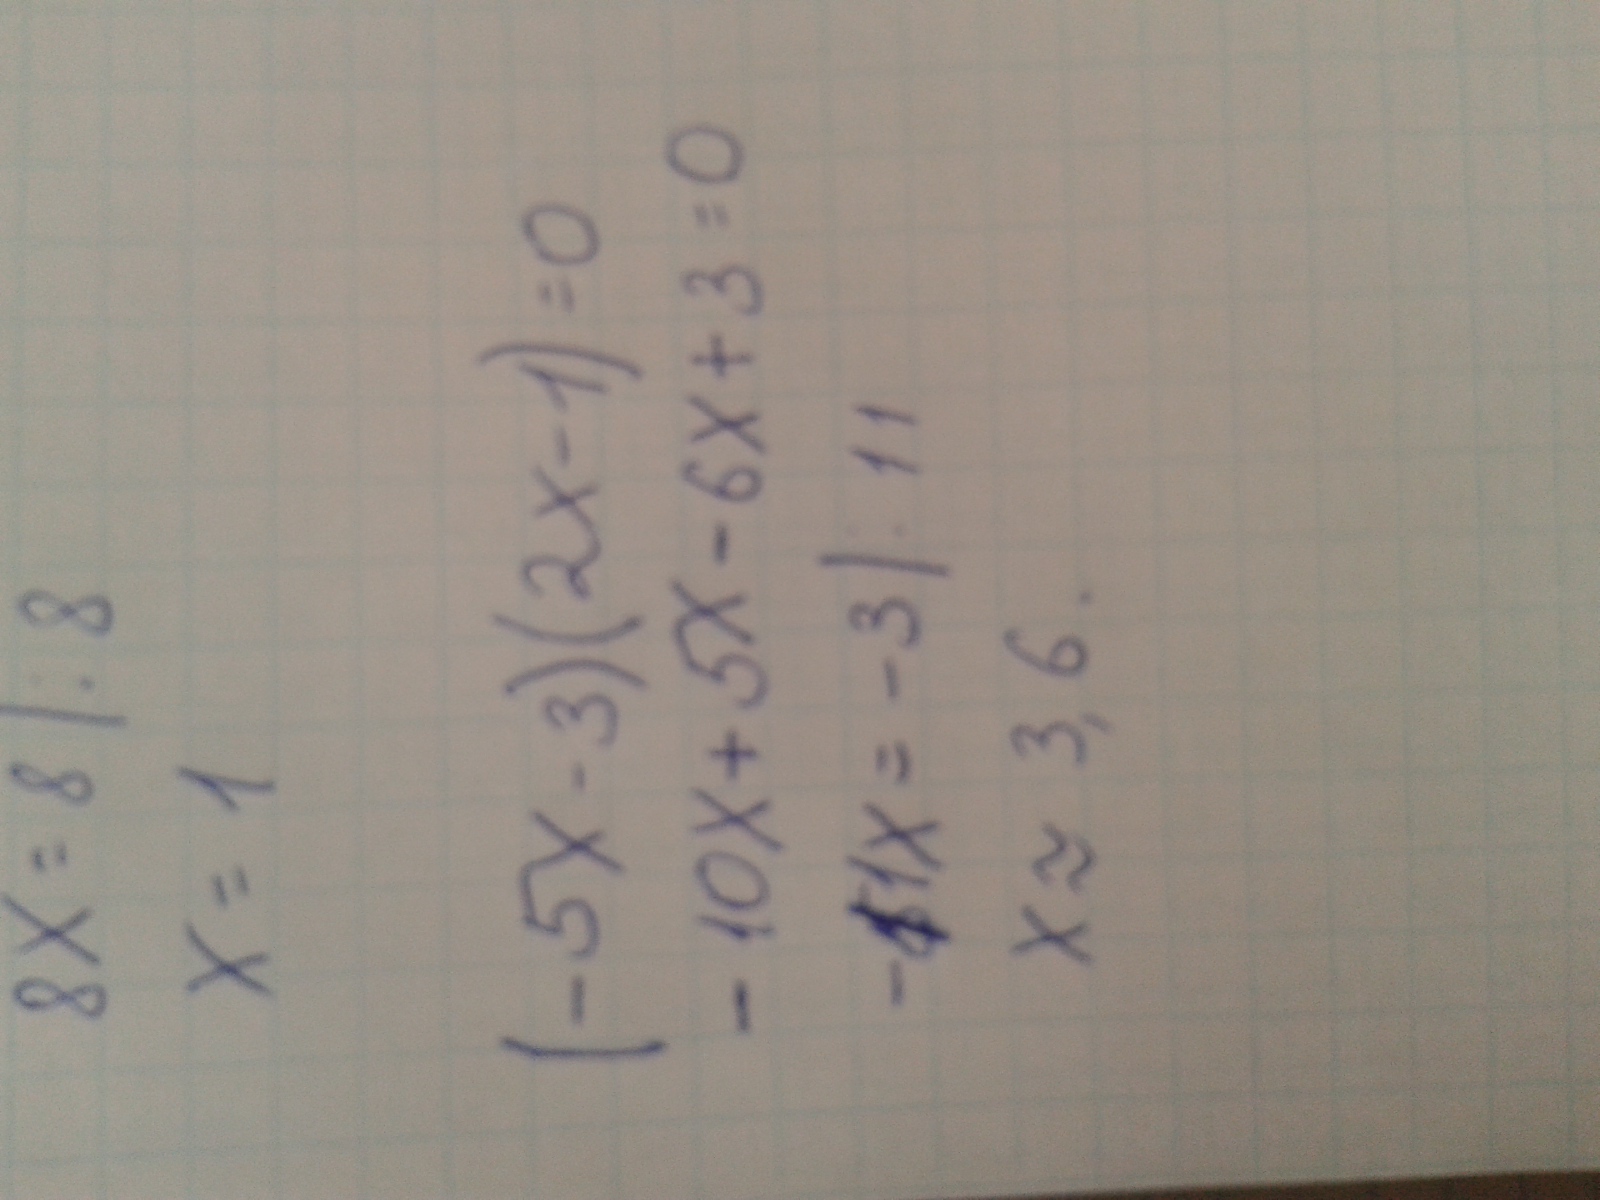 8x = 8 | : 8
x = 1
(-5x - 3)(2x - 1) = 0
- 10x + 5x - 6x + 3 = 0
-11x = -3 | : 11
x ≈ 3,6.